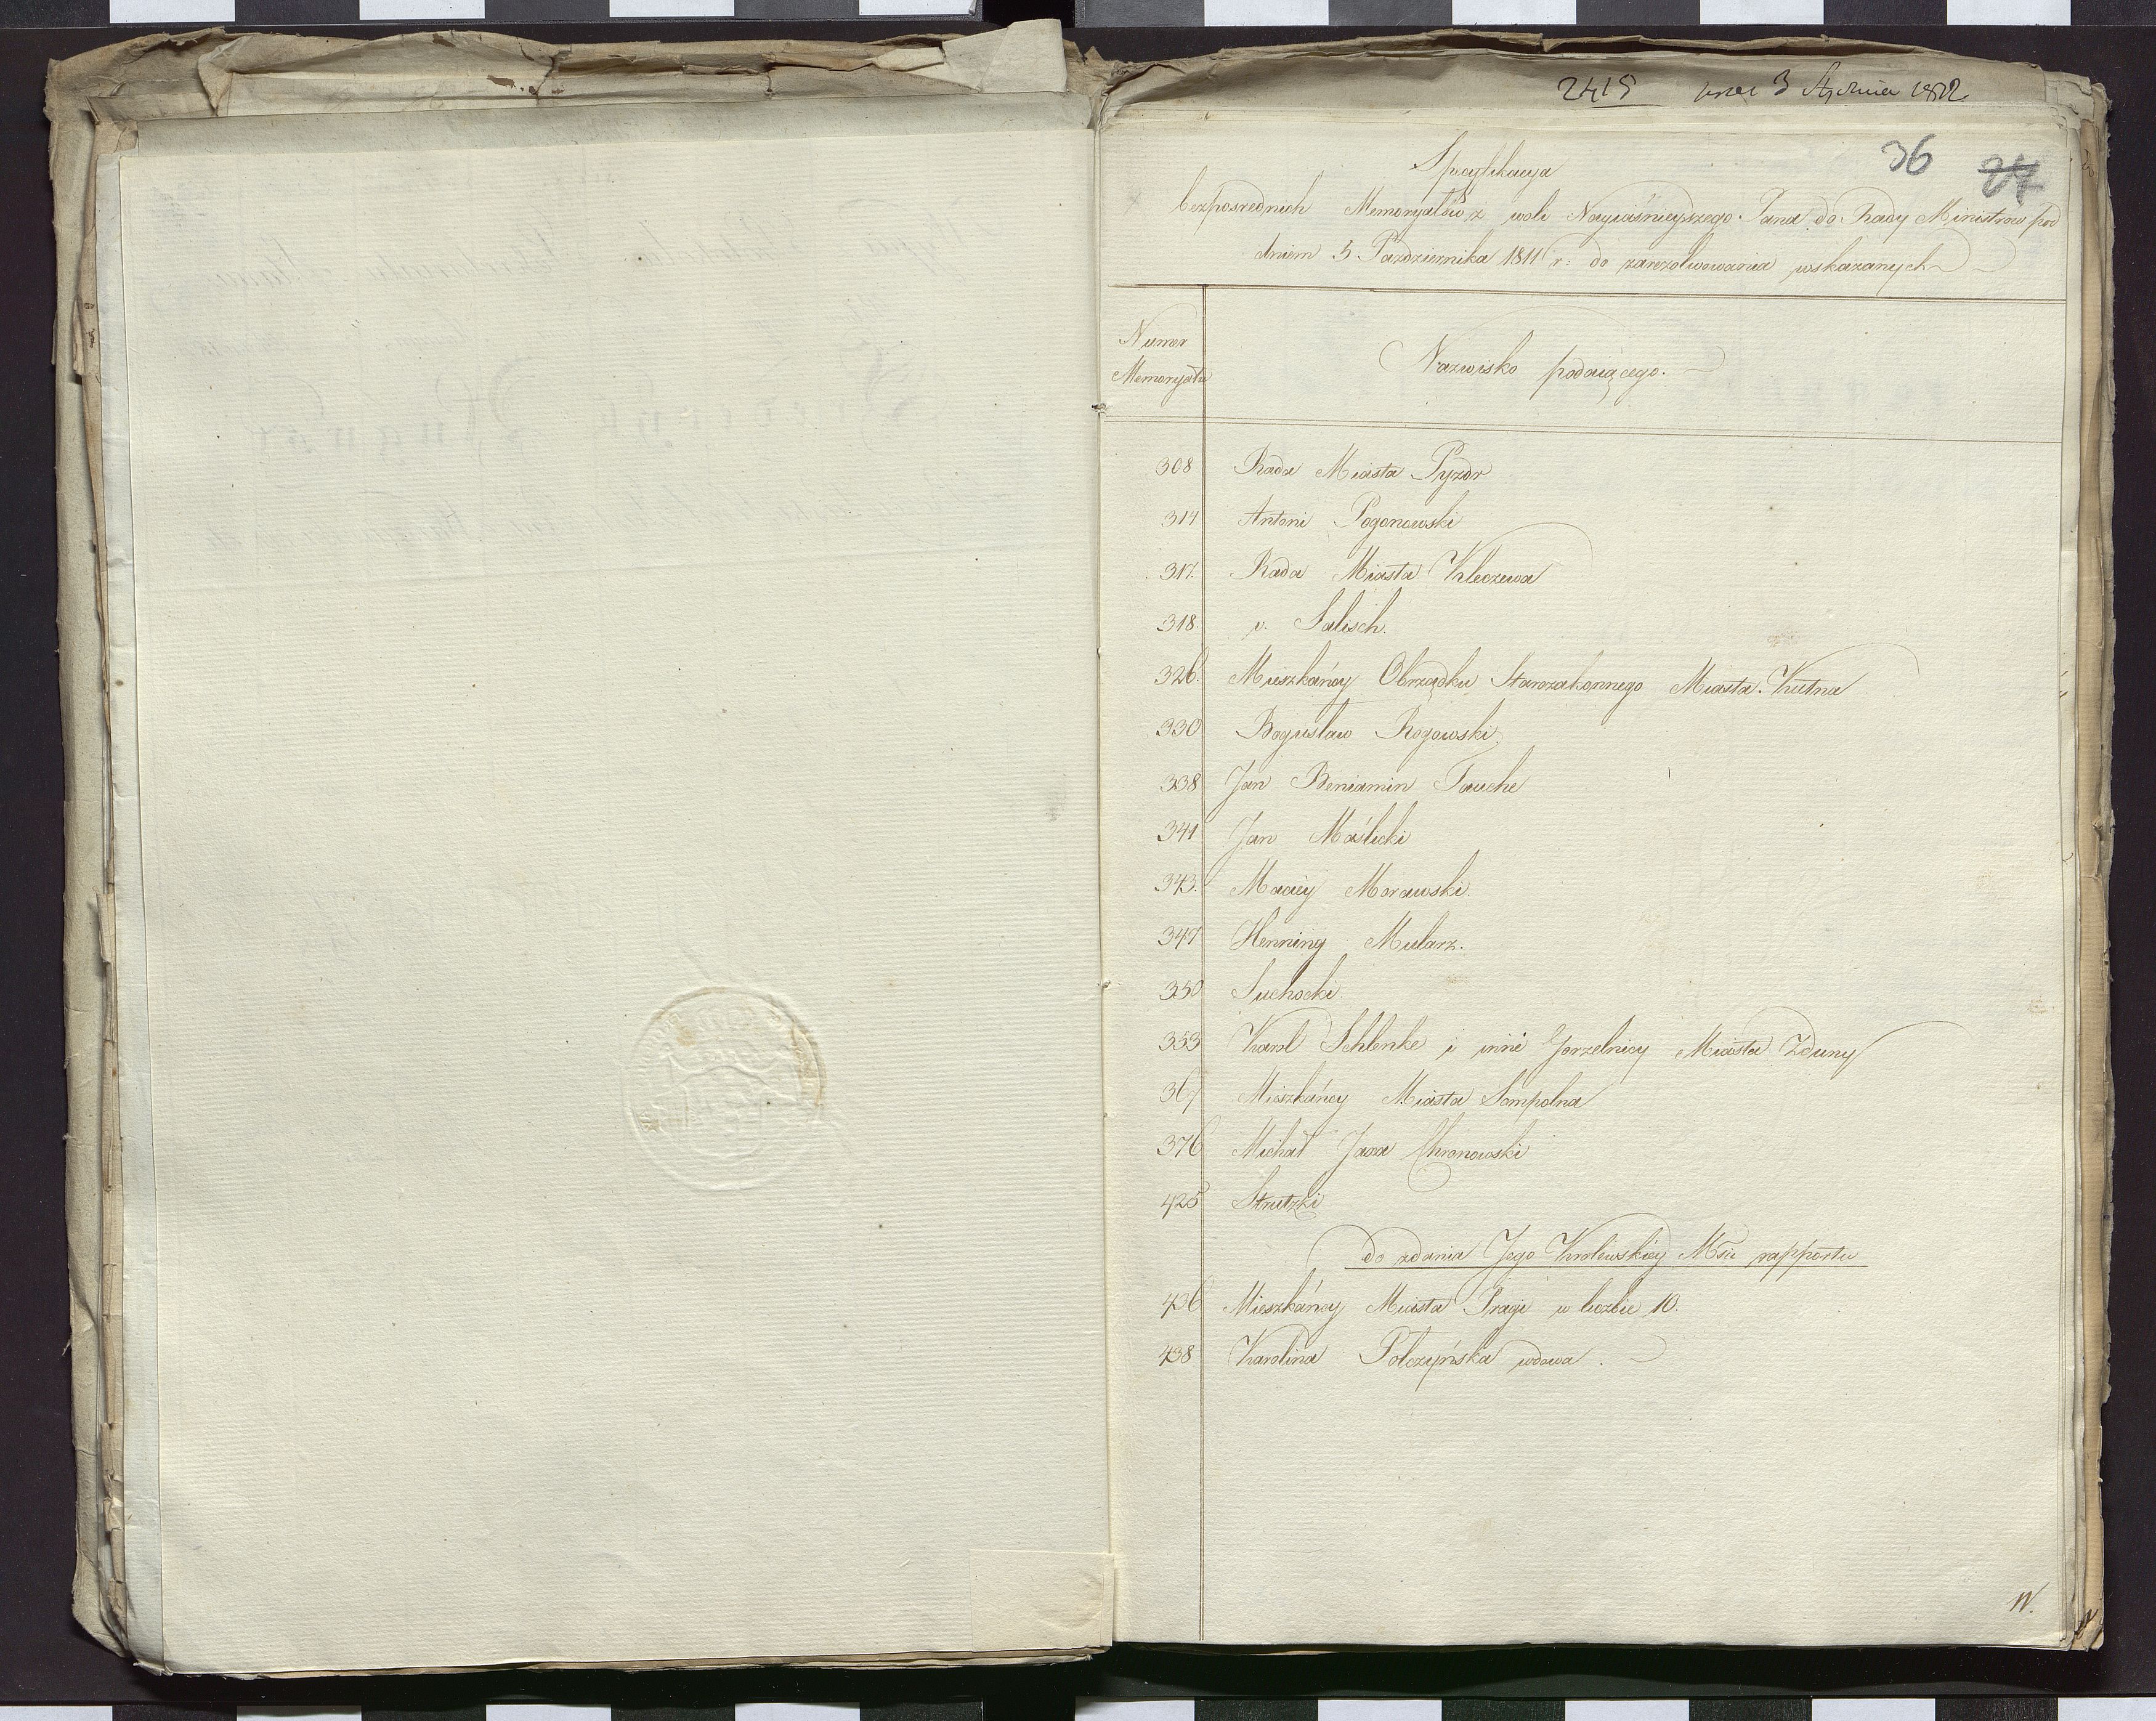 2415 prae 3 Stycznia 1812
36 27
Specyfikacya
bezposrednich Memoryałów z woli Nayiaśnieyszego Pana do Rady Ministrow pod
dniem 5 Pazdziernika 1811 r: do zarezolwowania wskazanych
Numer
Memoryału
Nazwisko podaiącego.
308 Rada Miasta Pyzdr
314 Antoni Pogonowski
317. Rada Miasta Kleczewa
318. v. Salisch.
326. Mieszkańcy Obrządku Starozakonnego Miasta Kutna
330 Bogusław Rogowski
338 Jan Beniamin Tauche
341 Jan Maślicki
343. Maciey Morawski.
347 Henning Mularz.
350 Suchocki.
353 Karol Schlenke i inni Gorzelnicy Miasta Zduny
367 Mieszkańcy Miasta Sompolna
376 Michał Jaxa Chronowski
425 Strutzki
do zdania Jego Krolewskiey Mści rapportu
436 Mieszkańcy Miasta Pragi w liczbie 10.
438 Karolina Połczyńska wdowa.
W.